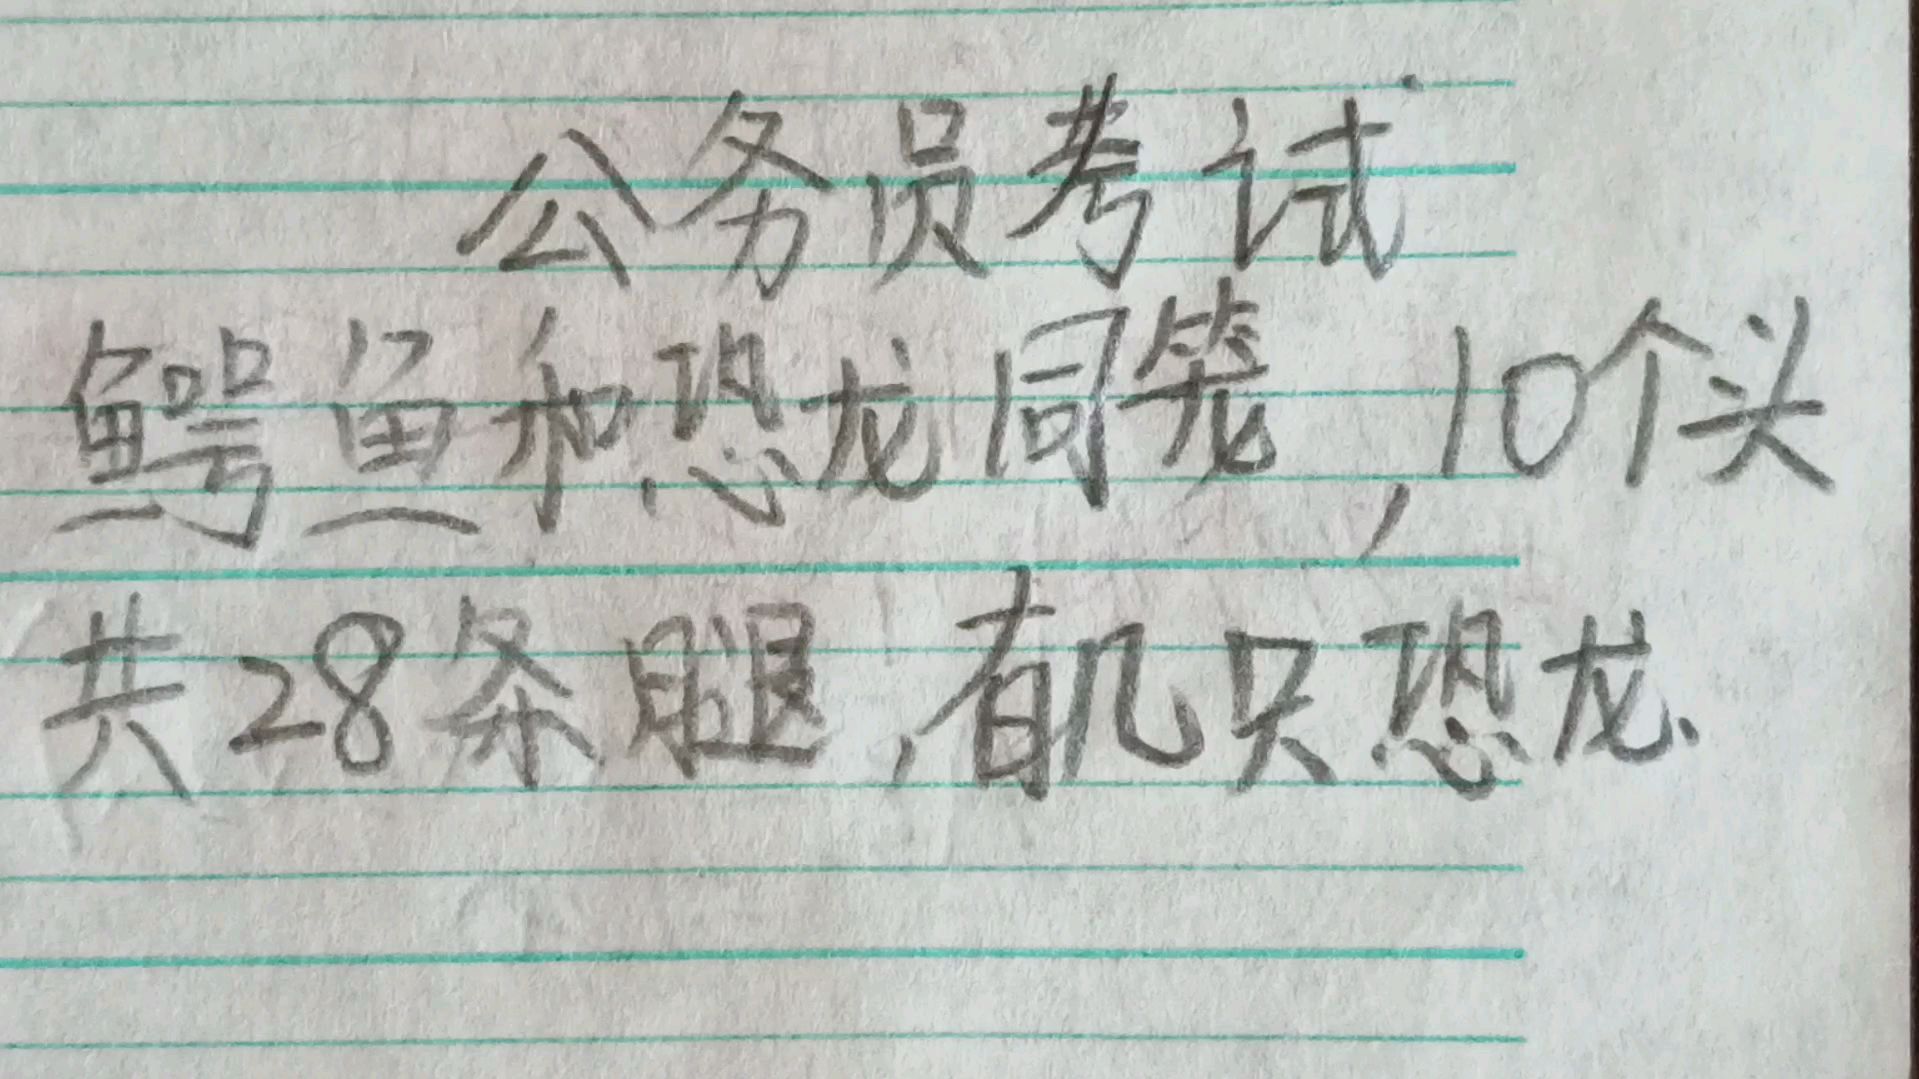 公务员考试
鳄鱼和恐龙同笼,10个头
共28条腿,有几只恐龙.